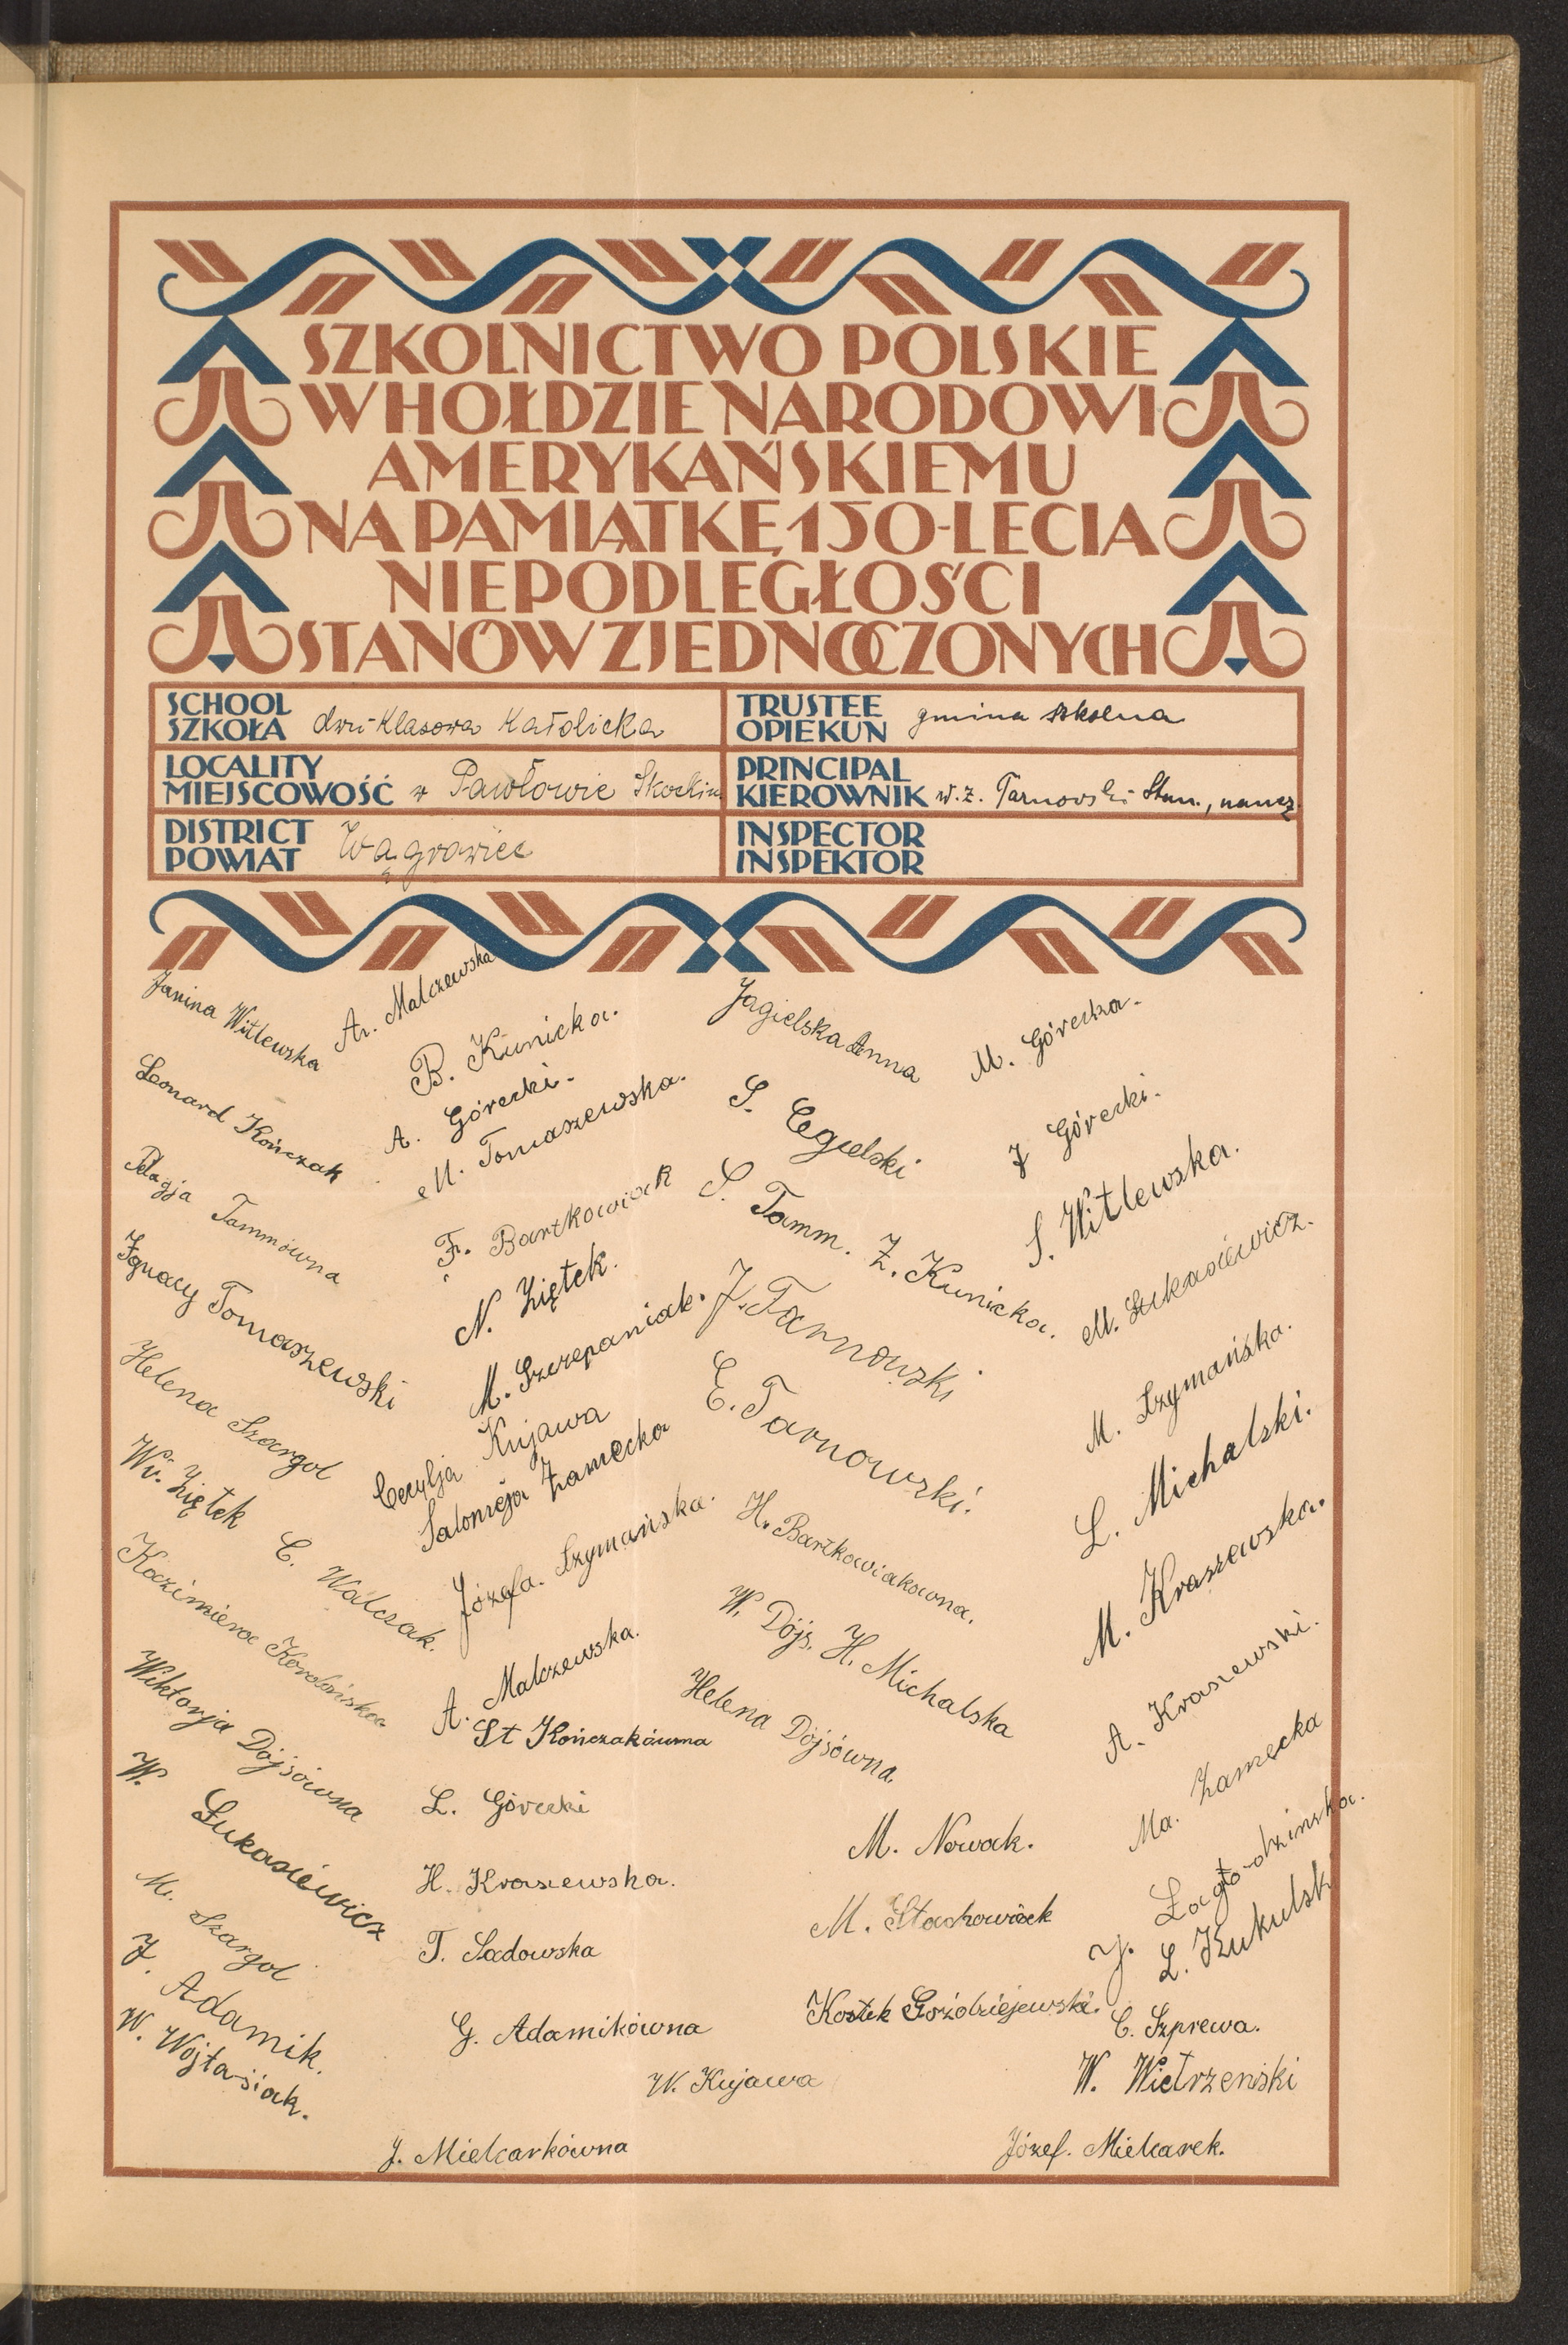 SZKOLNICTWO POLSKIE
W HOŁDZIE NARODOWI
AMERYKAŃSKIEMU
NA PAMIĄTKĘ 150-LECIA
NIEPODLEGŁOŚCI
STANÓW ZJEDNOCZONYCH
SCHOOL
SZKOŁA dwu-klasowa Katolicka
TRUSTEE
OPIEKUN gmina szkolna
LOCALITY
MIEJSCOWOŚĆ w Pawłowie Skockim
PRINCIPAL
KIEROWNIK w.z. Tarnowski Stan., naucz.
DISTRICT
POWIAT Wągrowiec
INSPECTOR
INSPEKTOR
Janina Witlewska
Leonard Kończak
Pelagja Tammówna
Ignacy Tomaszewski
Helena Szargol
Wł. Ziętek
C. Walczak.
Kazimiera Karolińska
Wiktorja Dojsówna
W. Łukasiewicz
M. Szargol
J. Adamik.
W. Wojtasiak.
A. Malczewska
B. Kunicka.
A. Górecki.
M. Tomaszewska.
Fr. Bartkowiak
N. Ziętek.
M. Szczepaniak.
Cecylja Kujawa
Salomeja Zamecka
Józefa. Szymańska.
A. Malczewska.
St Kończakówna
L. Górecki
H. Kraszewska.
T. Sadowska
G. Adamikówna
W. Kujawa
J. Mielcarkówna
Jagielska Anna
S. Cegielski
S. Tamm.
Z. Kunicka.
J. Tarnowski
E. Tarnowski.
H. Bartkowiakowna.
W. Dojs.
H. Michalska
Helena Dojsówna.
M. Nowak.
M. Stachowiak
Kostek Goździejewski.
M. Górecka.
J Górecki.
S. Witlewska.
M. Łukasiewicz.
M. Szymańska.
L. Michalski.
M. Kraszewska.
A. Kraszewski.
Ma. Zamecka
J. Zagłodzinska.
L. Kukulski
C. Szprewa.
W. Wietrzeński
Józef. Mielcarek.